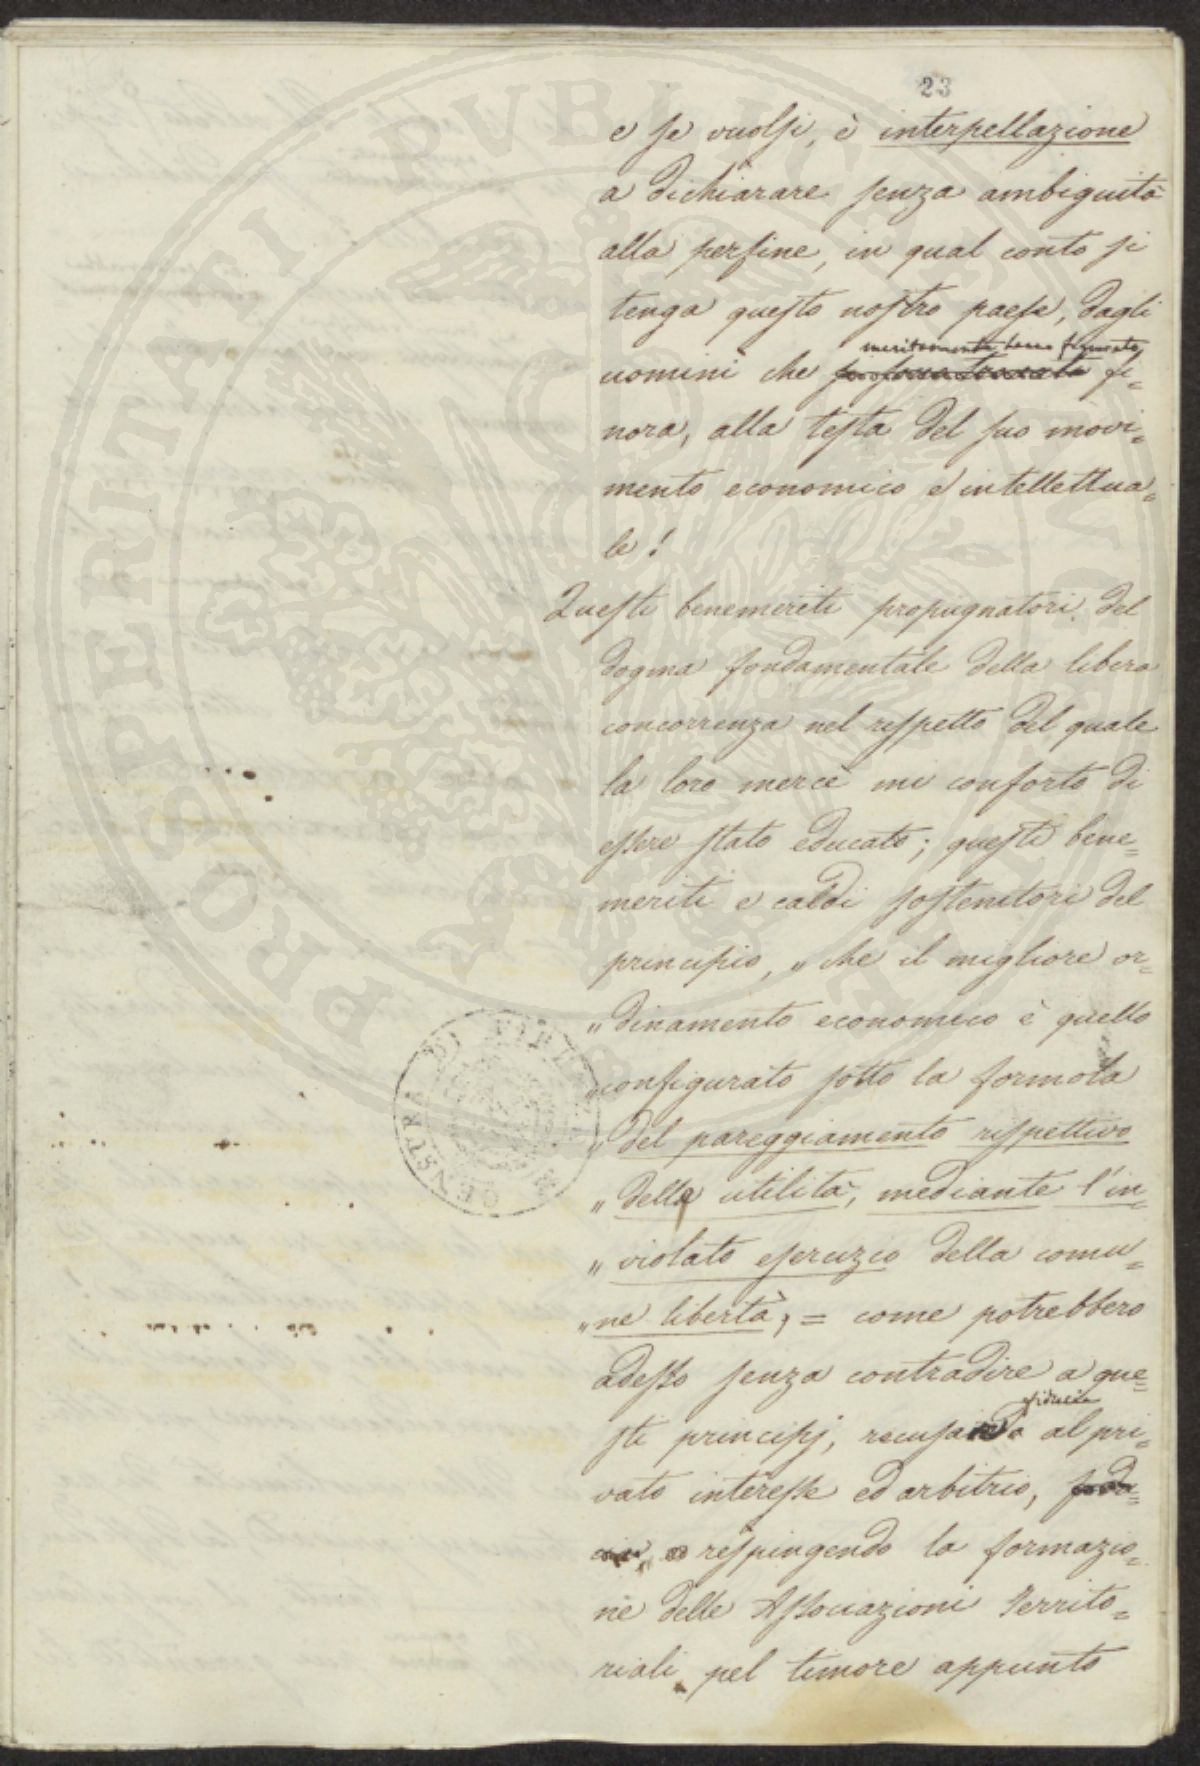 23
e se vuolsi, è interpellazione
a dichiarare senza ambiguità
alla perfine, in qual conto si
tenga questo nostro paese, dagli
meritamente
uomini che fi=
nora, alla testa del suo movi=
mento economico e intellettua=
le!
Questi benemeriti propugnatori del
dogma fondamentale della libera
concorrenza nel rispetto del quale
la loro mercè mi conforto di
essere stato educato; questi bene=
meriti e caldi sostenitori del
principio, „ che il migliore or=
„ dinamento economico è quello
„ configurato sotto la formola
„ del pareggiamento rispettivo
„ delle utilità, mediante l'in=
„ violato esercizio della comu=
„ ne libertà, = come potrebbero
adesso senza contradire a que=
fiducia
sti principj, recusando al pri=
vato interesse ed arbitrio,
respingendo la formazio=
ne delle Associazioni Territo=
riali pel timore appunto
PROSPERITATI PUBLICAE